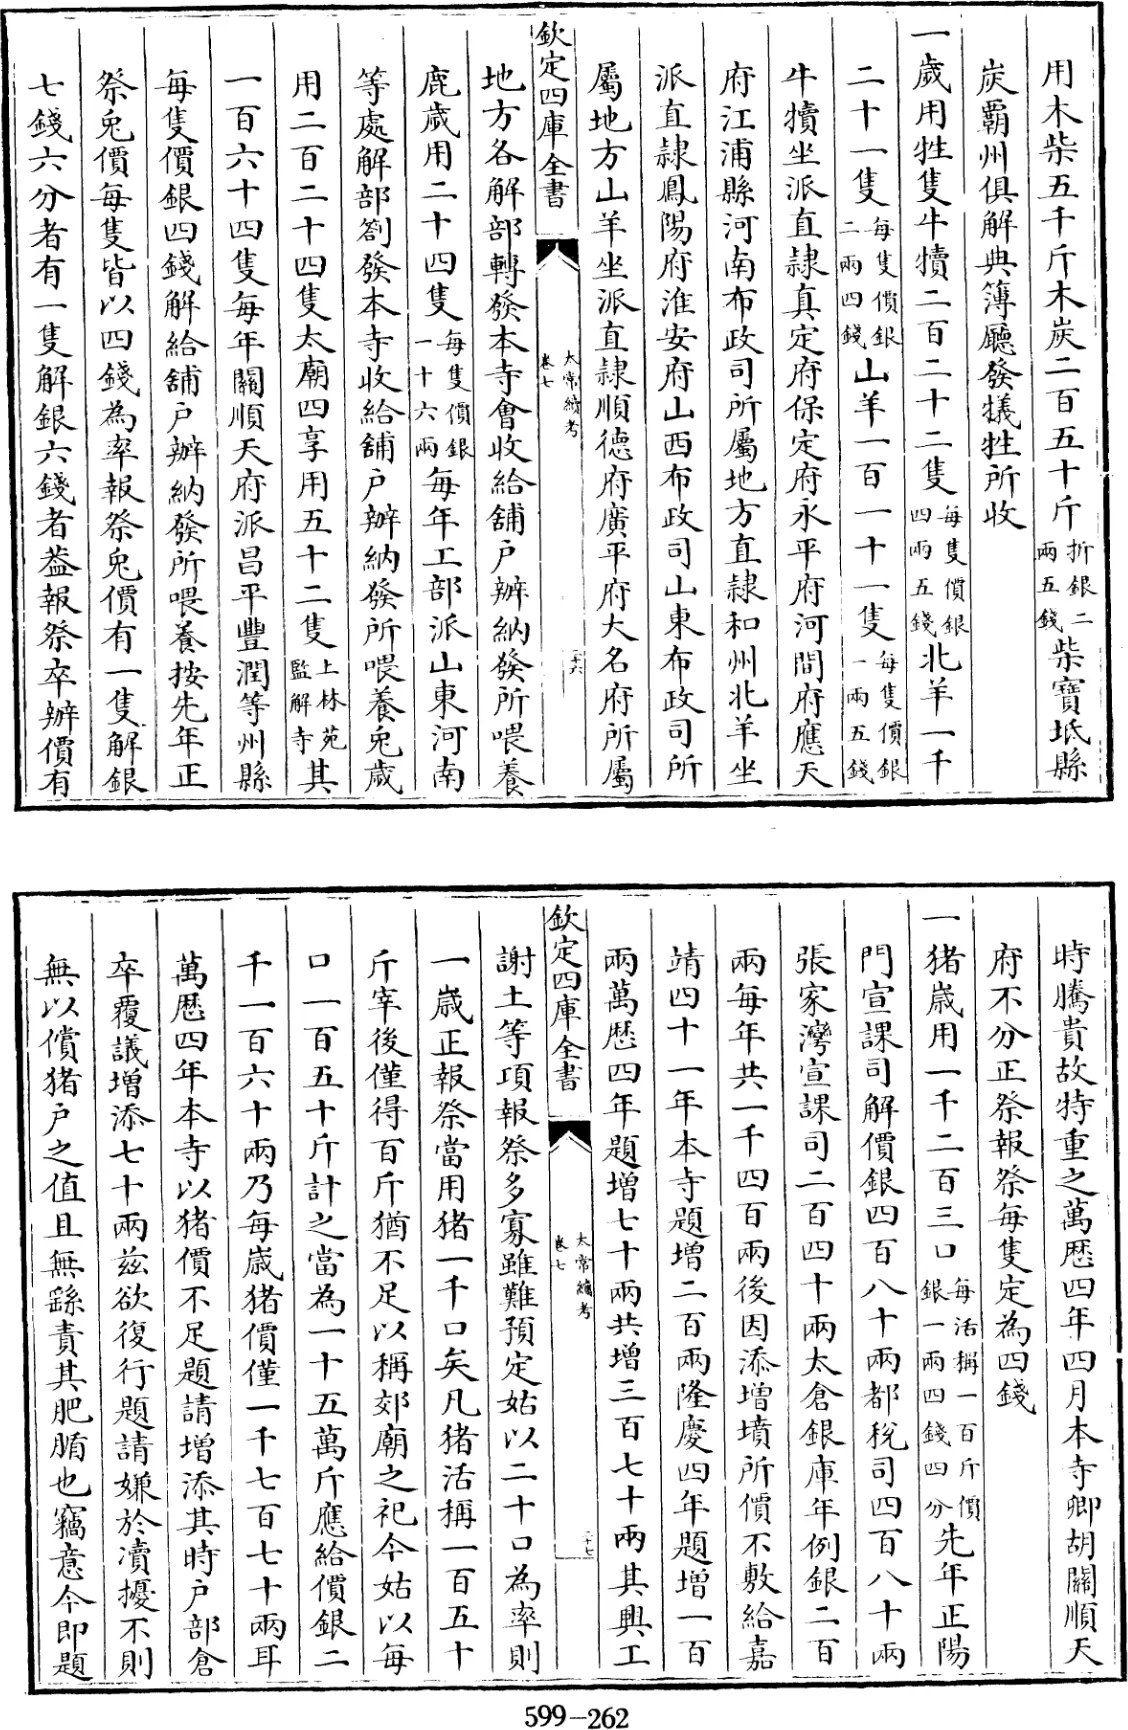 用木柴五千斤木炭二百五十斤折銀二兩五錢柴寶坻縣
炭霸州俱解典簿廳發犧牲所收
一歲用牲隻牛犢二百二十二隻每隻價銀四兩五錢北羊一千
二十一隻每隻價銀二兩四錢山羊一百一十一隻每隻價銀一兩五錢
牛犢坐派直隸真定府保定府永平府河間府應天
府江浦縣河南布政司所屬地方直隸和州北羊坐
派直隸鳳陽府淮安府山西布政司山東布政司所
屬地方山羊坐派直隸順德府廣平府大名府所屬
欽定四庫全書
太常續考
卷七
二六
地方各解部轉發本寺會收給舖户辦納發所喂養
鹿歲用二十四隻每隻價銀一十六兩每年工部派山東河南
等處解部劄發本寺收給舖户辦納發所喂養兎歲
用二百二十四隻太廟四享用五十二隻上林苑監解寺其
一百六十四隻每年關順天府派昌平豐潤等州縣
每隻價銀四錢解給舖户辦納發所喂養按先年正
祭兎價每隻皆以四錢為率報祭兎價有一隻解銀
七錢六分者有一隻解銀六錢者葢報祭卒辦價有
時騰貴故特重之萬歴四年四月本寺卿胡關順天
府不分正祭報祭每隻定為四錢
一猪歲用一千二百三口每活稱一百斤價銀一兩四錢四分先年正陽
門宣課司解價銀四百八十兩都稅司四百八十兩
張家灣宣課司二百四十兩太倉銀庫年例銀二百
兩每年共一千四百兩後因添增墳所價不敷給嘉
靖四十一年本寺題增二百兩隆慶四年題增一百
兩萬歴四年題增七十兩共增三百七十兩其興工
欽定四庫全書
太常續考
卷七
二七
謝土等項報祭多寡雖難預定姑以二十口為率則
一歲正報祭當用猪一千口矣凡猪活稱一百五十
斤宰後僅得百斤猶不足以稱郊廟之祀今姑以每
口一百五十斤計之當為一十五萬斤應給價銀二
千一百六十兩乃每歲猪價僅一千七百七十兩耳
萬歴四年本寺以猪價不足題請增添其時户部倉
卒覆議增添七十兩兹欲復行題請嫌於瀆擾不則
無以償猪户之值且無繇責其肥腯也竊意今即題
599-262